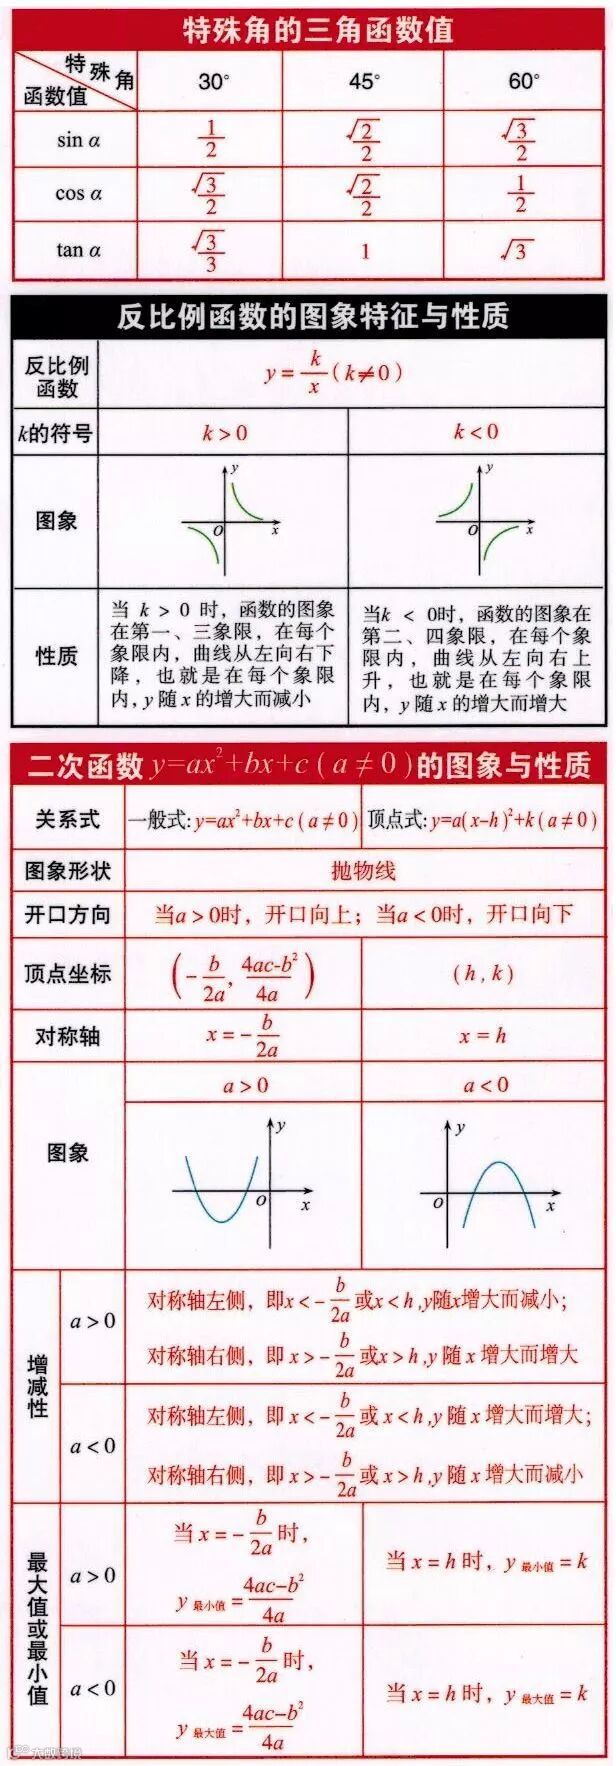 特殊角的三角函数值
特殊角
函数值
30° 45° 60°
sin α 1/2 √2/2 √3/2
cos α √3/2 √2/2 1/2
tan α √3/3 1 √3
反比例函数的图象特征与性质
反比例
函数
y = k/x (k≠0)
k的符号 k>0 k<0
图象
y
O x
y
O x
性质
当 k > 0 时，函数的图象
在第一、三象限，在每个
象限内，曲线从左向右下
降，也就是在每个象限
内，y 随 x 的增大而减小
当k < 0时，函数的图象在
第二、四象限，在每个象
限内，曲线从左向右上
升，也就是在每个象限
内，y 随 x 的增大而增大
二次函数 y=ax²+bx+c (a≠0)的图象与性质
关系式 一般式:y=ax²+bx+c (a≠0) 顶点式:y=a(x-h)²+k (a≠0)
图象形状 抛物线
开口方向 当a>0时，开口向上；当a<0时，开口向下
顶点坐标 (-b/2a, 4ac-b²/4a) (h,k)
对称轴 x=-b/2a x=h
图象
a>0 a<0
y
O x
y
O x
增减性
a>0
对称轴左侧，即x<-b/2a或x<h,y随x增大而减小；
对称轴右侧，即x>-b/2a或x>h,y随x增大而增大
a<0
对称轴左侧，即x<-b/2a或x<h,y随x增大而增大；
对称轴右侧，即x>-b/2a或x>h,y随x增大而减小
最大值或最小值
a>0
当x=-b/2a时，
y最小值=4ac-b²/4a
当x=h时，y最小值=k
a<0
当x=-b/2a时，
y最大值=4ac-b²/4a
当x=h时，y最大值=k